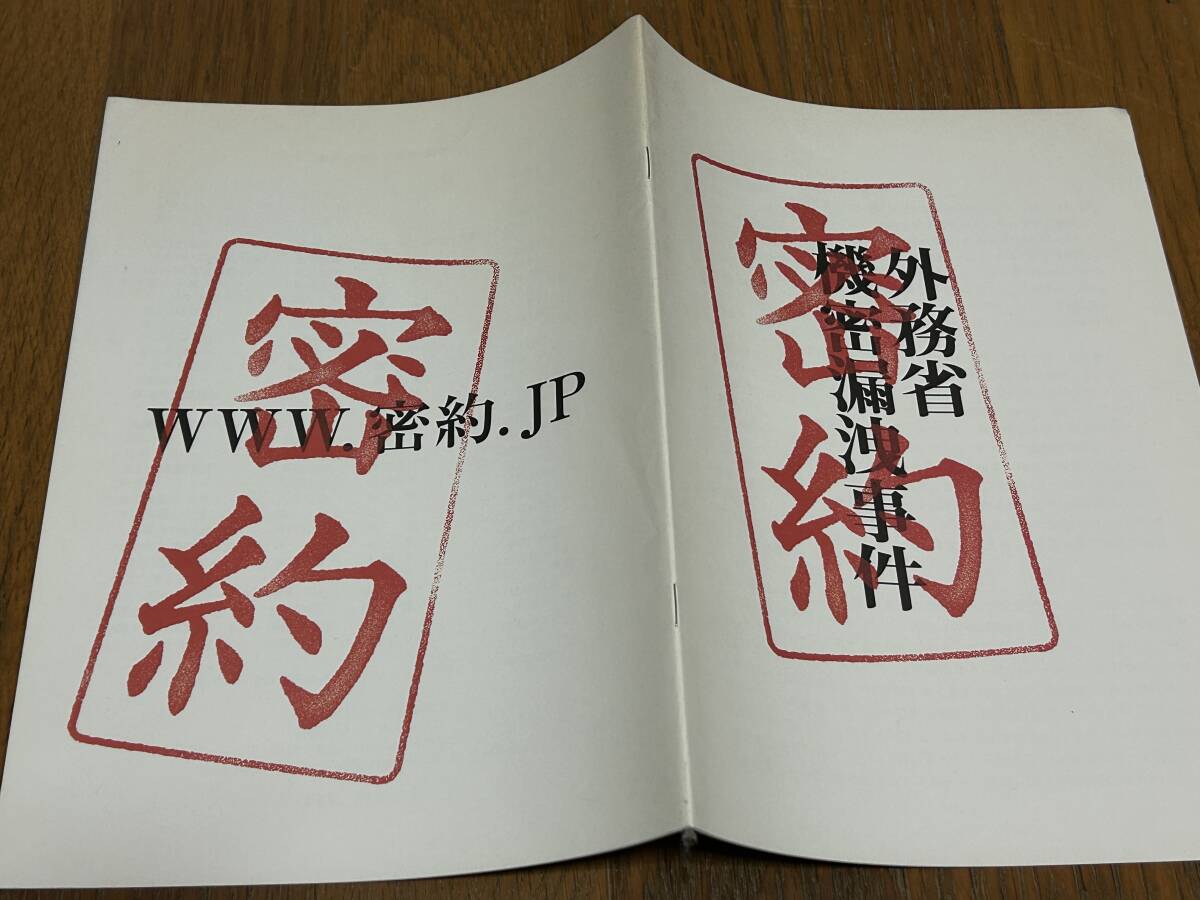 密約
外務省
機密漏洩事件
密約
www.密約.JP